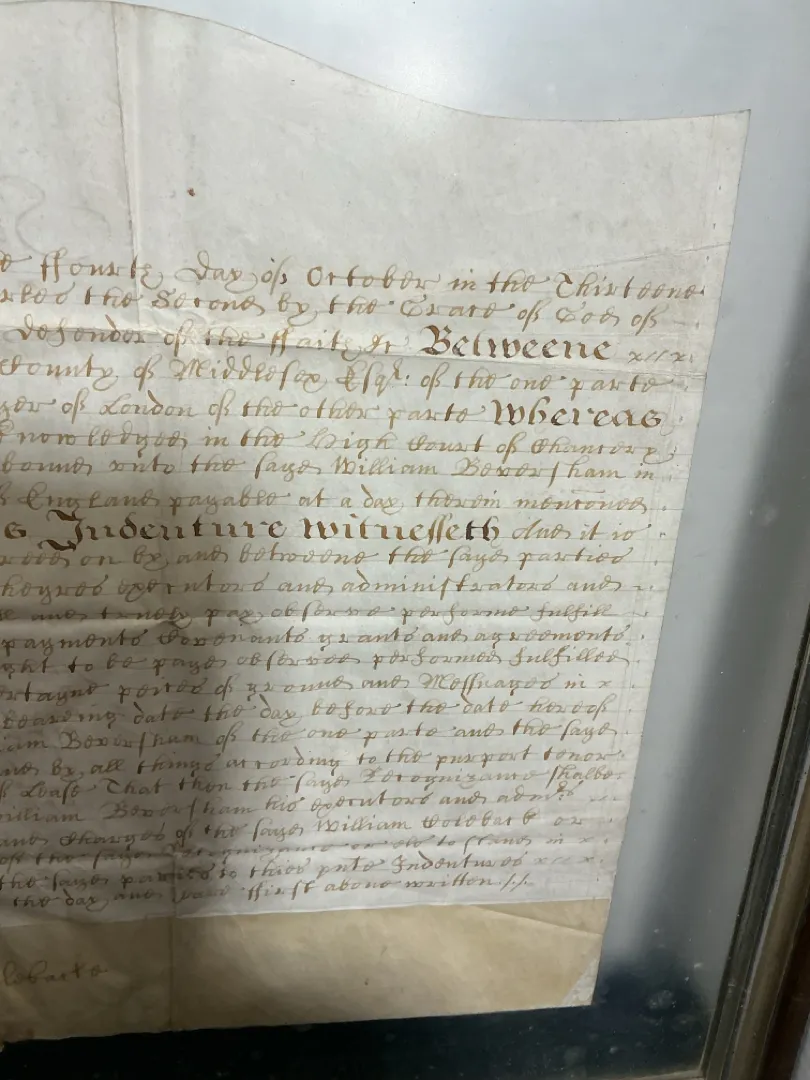 ffourth Day of October in the Thirteene
the Second by the Grace of God of
defender of the ffaith &c Betweene
County of Middlesex Esqr: of the one parte
of London of the other parte Whereas
in the High Court of Chancery
bound unto the sayd William Beversham in
England payable at a day therein mentioned
Indenture Witnesseth and it is
on by and betweene the sayd parties
executors and administrators and
and truely pay observe performe fulfill
payments Covenants grants and agreements
to be payd observed performed fulfilled
peeces of ground and Messuages in
beareing date the day before the date hereof
Beversham of the one parte and the sayd
by all things according to the purport tenor
Lease That then the sayd Recognizance shalbe
William Beversham his executors and admrs
and Charges of the sayd William or
the sayd Recognizance or els to stand in
the sayd parties to thies pnte Indentures
the day and yeare ffirst above written